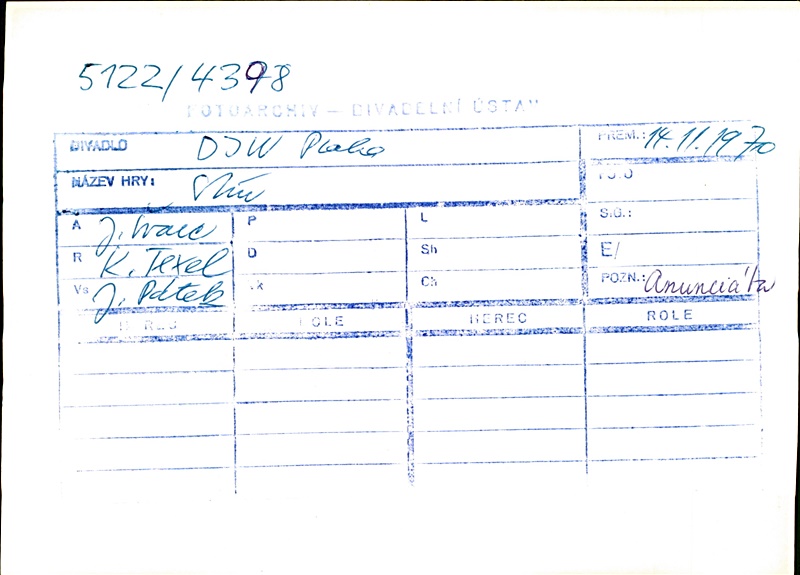 5122/4398
FOTOARCHIV – DIVADELNÍ ÚSTAV
DIVADLO DJW Praha PREM.: 14.11.1970
NÁZEV HRY: Stín
A J. Švarc P L S.G.:
R K. Texel D Sh E/
Vs J. Pátek Ch POZN.: Anunciáta
HEREC ROLE HEREC ROLE